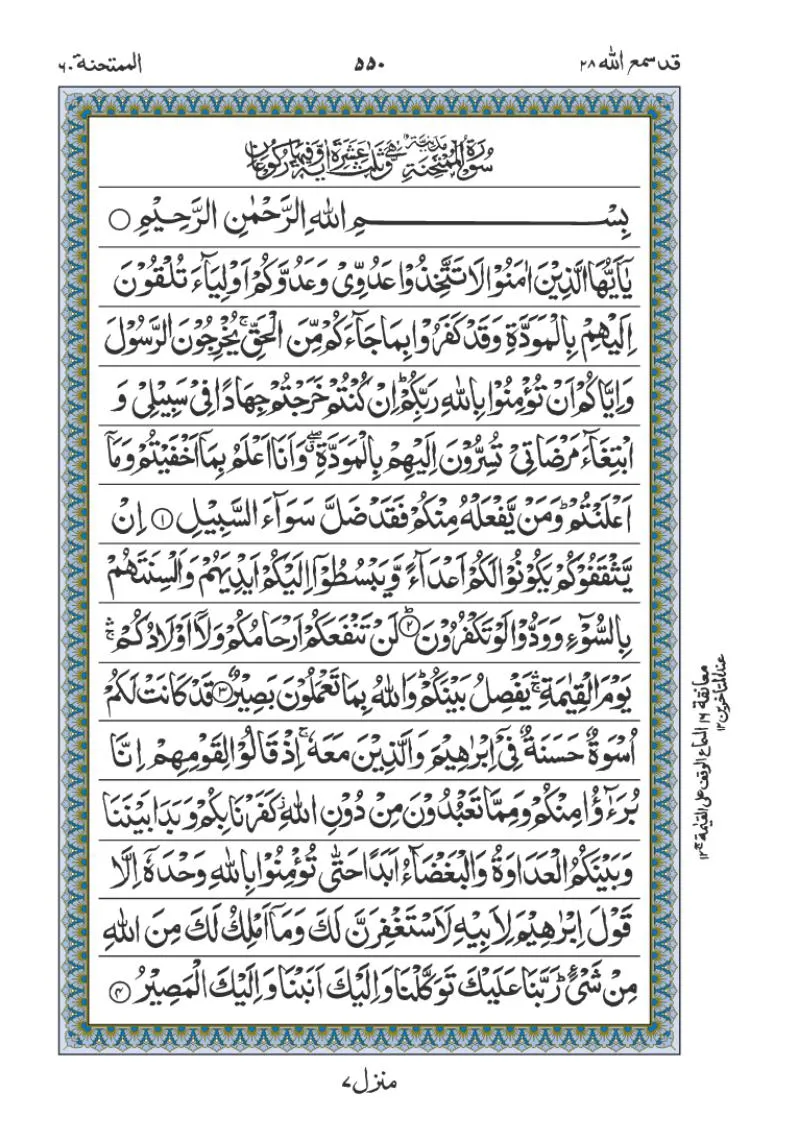 قد سمع الله ٢٨
٥٥٠
الممتحنة ٦٠
سُوْرَةُ الْمُمْتَحِنَةِ مَدَنِيَّةٌ وَّهِيَ ثَلٰثَ عَشْرَةَ اٰيَةً وَّفِيْهَا رُكُوْعَانِ
بِسْمِ اللهِ الرَّحْمٰنِ الرَّحِيْمِ ○
يٰۤاَيُّهَا الَّذِيْنَ اٰمَنُوْا لَا تَتَّخِذُوْا عَدُوِّىْ وَعَدُوَّكُمْ اَوْلِيَآءَ تُلْقُوْنَ
اِلَيْهِمْ بِالْمَوَدَّةِ وَقَدْ كَفَرُوْا بِمَا جَآءَكُمْ مِّنَ الْحَقِّ ۚ يُخْرِجُوْنَ الرَّسُوْلَ
وَاِيَّاكُمْ اَنْ تُؤْمِنُوْا بِاللهِ رَبِّكُمْ ؕ اِنْ كُنْتُمْ خَرَجْتُمْ جِهَادًا فِىْ سَبِيْلِىْ وَ
ابْتِغَآءَ مَرْضَاتِىْ تُسِرُّوْنَ اِلَيْهِمْ بِالْمَوَدَّةِ ۖ وَاَنَا اَعْلَمُ بِمَاۤ اَخْفَيْتُمْ وَمَاۤ
اَعْلَنْتُمْ ؕ وَمَنْ يَّفْعَلْهُ مِنْكُمْ فَقَدْ ضَلَّ سَوَآءَ السَّبِيْلِ ۝١ اِنْ
يَّثْقَفُوْكُمْ يَكُوْنُوْا لَكُمْ اَعْدَآءً وَّيَبْسُطُوْۤا اِلَيْكُمْ اَيْدِيَهُمْ وَاَلْسِنَتَهُمْ
بِالسُّوْٓءِ وَوَدُّوْا لَوْ تَكْفُرُوْنَ ؕ۝٢ لَنْ تَنْفَعَكُمْ اَرْحَامُكُمْ وَلَاۤ اَوْلَادُكُمْ ۛۚ
يَوْمَ الْقِيٰمَةِ ۛۚ يَفْصِلُ بَيْنَكُمْ ؕ وَاللهُ بِمَا تَعْمَلُوْنَ بَصِيْرٌ ۝٣ قَدْ كَانَتْ لَكُمْ
اُسْوَةٌ حَسَنَةٌ فِىْۤ اِبْرٰهِيْمَ وَالَّذِيْنَ مَعَهٗ ۚ اِذْ قَالُوْا لِقَوْمِهِمْ اِنَّا
بُرَءٰٓؤُا مِنْكُمْ وَمِمَّا تَعْبُدُوْنَ مِنْ دُوْنِ اللهِ ۫ كَفَرْنَا بِكُمْ وَبَدَا بَيْنَنَا
وَبَيْنَكُمُ الْعَدَاوَةُ وَالْبَغْضَآءُ اَبَدًا حَتّٰى تُؤْمِنُوْا بِاللهِ وَحْدَهٗۤ اِلَّا
قَوْلَ اِبْرٰهِيْمَ لِاَبِيْهِ لَاَسْتَغْفِرَنَّ لَكَ وَمَاۤ اَمْلِكُ لَكَ مِنَ اللهِ
مِنْ شَىْءٍ ؕ رَبَّنَا عَلَيْكَ تَوَكَّلْنَا وَاِلَيْكَ اَنَبْنَا وَاِلَيْكَ الْمَصِيْرُ ۝٤
معانقة ١٦
عند المتاخرين ١٢
منزل ٧